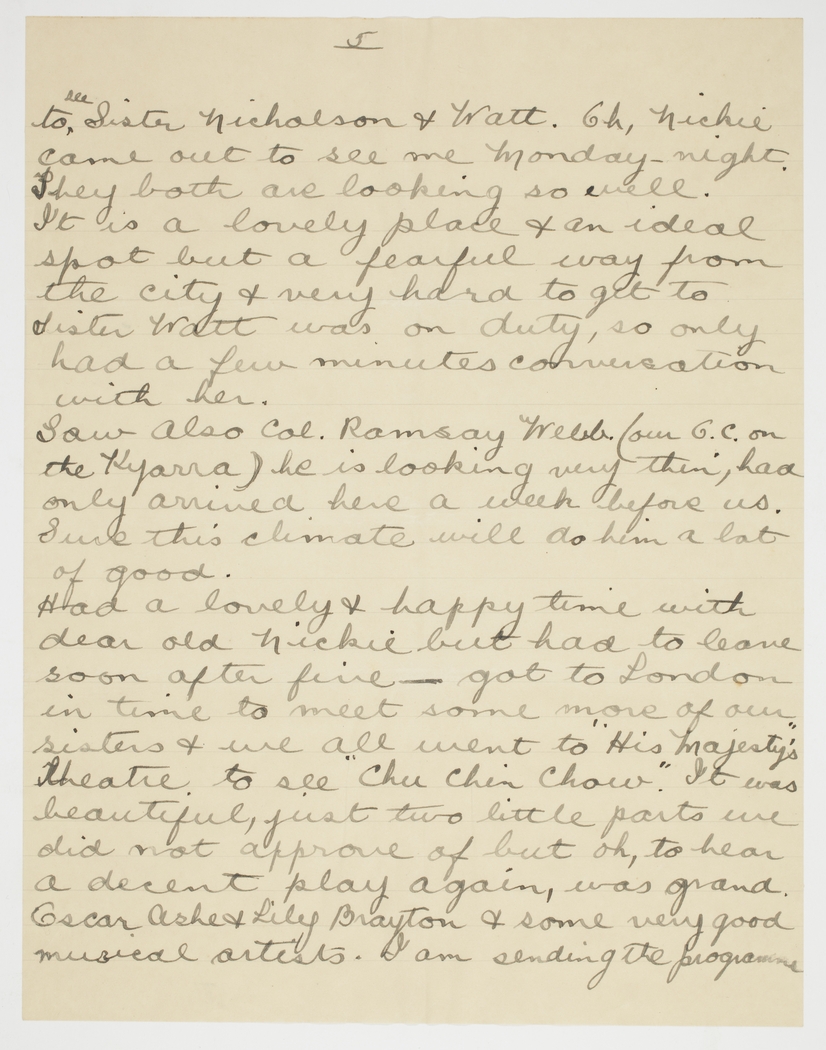 5
to see Sister Nicholson & Watt. Oh, Nickie
came out to see me Monday-night.
They both are looking so well.
It is a lovely place & an ideal
spot but a fearful way from
the city & very hard to get to
Sister Watt was on duty, so only
had a few minutes conversation
with her.
Saw Also Col. Ramsay Webb. (our O.C. on
the Kyarra) he is looking very thin, had
only arrived here a week before us.
Sure this climate will do him a lot
of good.
Had a lovely & happy time with
dear old Nickie but had to leave
soon after five — got to London
in time to meet some more of our
sisters & we all went to "His Majesty's"
Theatre. to see "Chu Chin Chow". It was
beautiful, just two little parts we
did not approve of but oh, to hear
a decent play again, was grand.
Oscar Ashe & Lily Brayton & some very good
musical artists. I am sending the programme